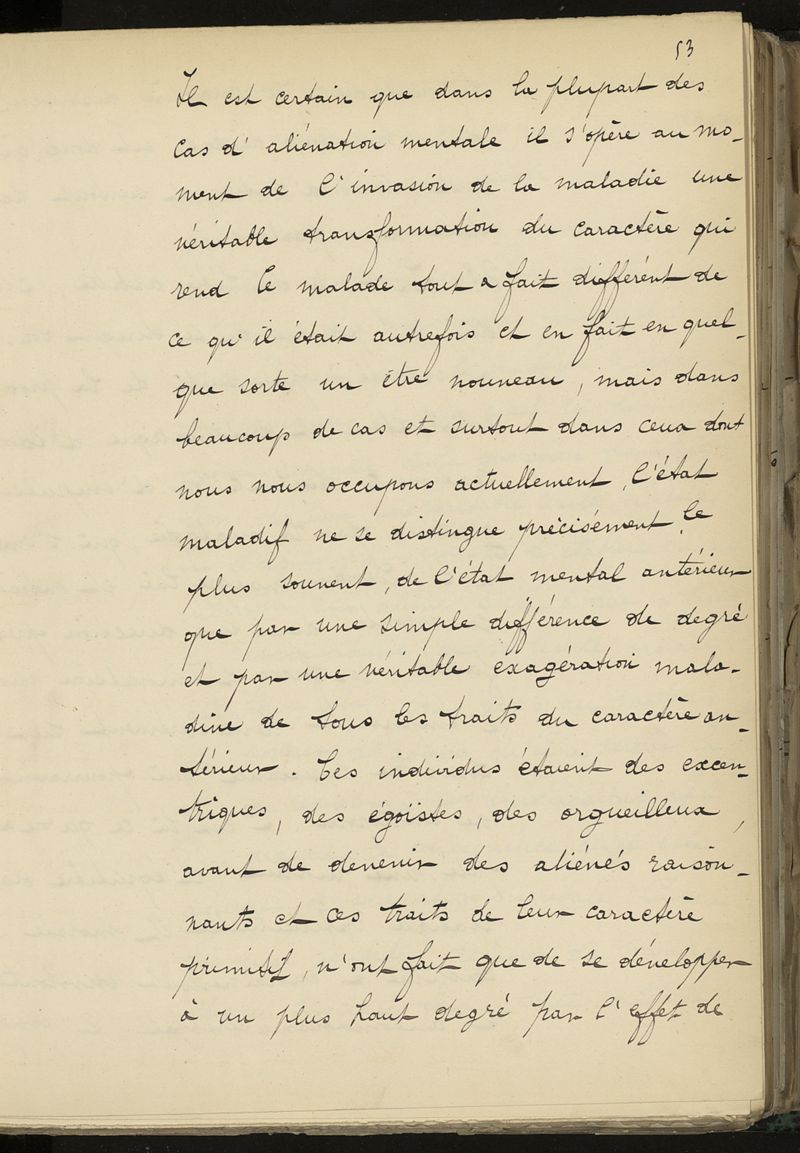 53
Il est certain que dans la plupart des
cas d' aliénation mentale il s'opère au mo-
ment de l'invasion de la maladie une
véritable transformation du caractère qui
rend le malade tout a fait différent de
ce qu'il était autrefois et en fait en quel-
que sorte un être nouveau, mais dans
beaucoup de cas et surtout dans ceux dont
nous nous occupons actuellement, l'état
maladif ne se distingue précisément, le
plus souvent, de l'état mental antérieur
que par une simple différence de degré
et par une véritable exagération mala-
dive de tous les traits du caractère an-
térieur. Ces individus étaient des excen-
triques, des égoïstes, des orgueilleux,
avant de devenir des aliénés raison-
nants et ces traits de leur caractère
primitif, n'ont fait que de se développer
à un plus haut degré par l'effet de